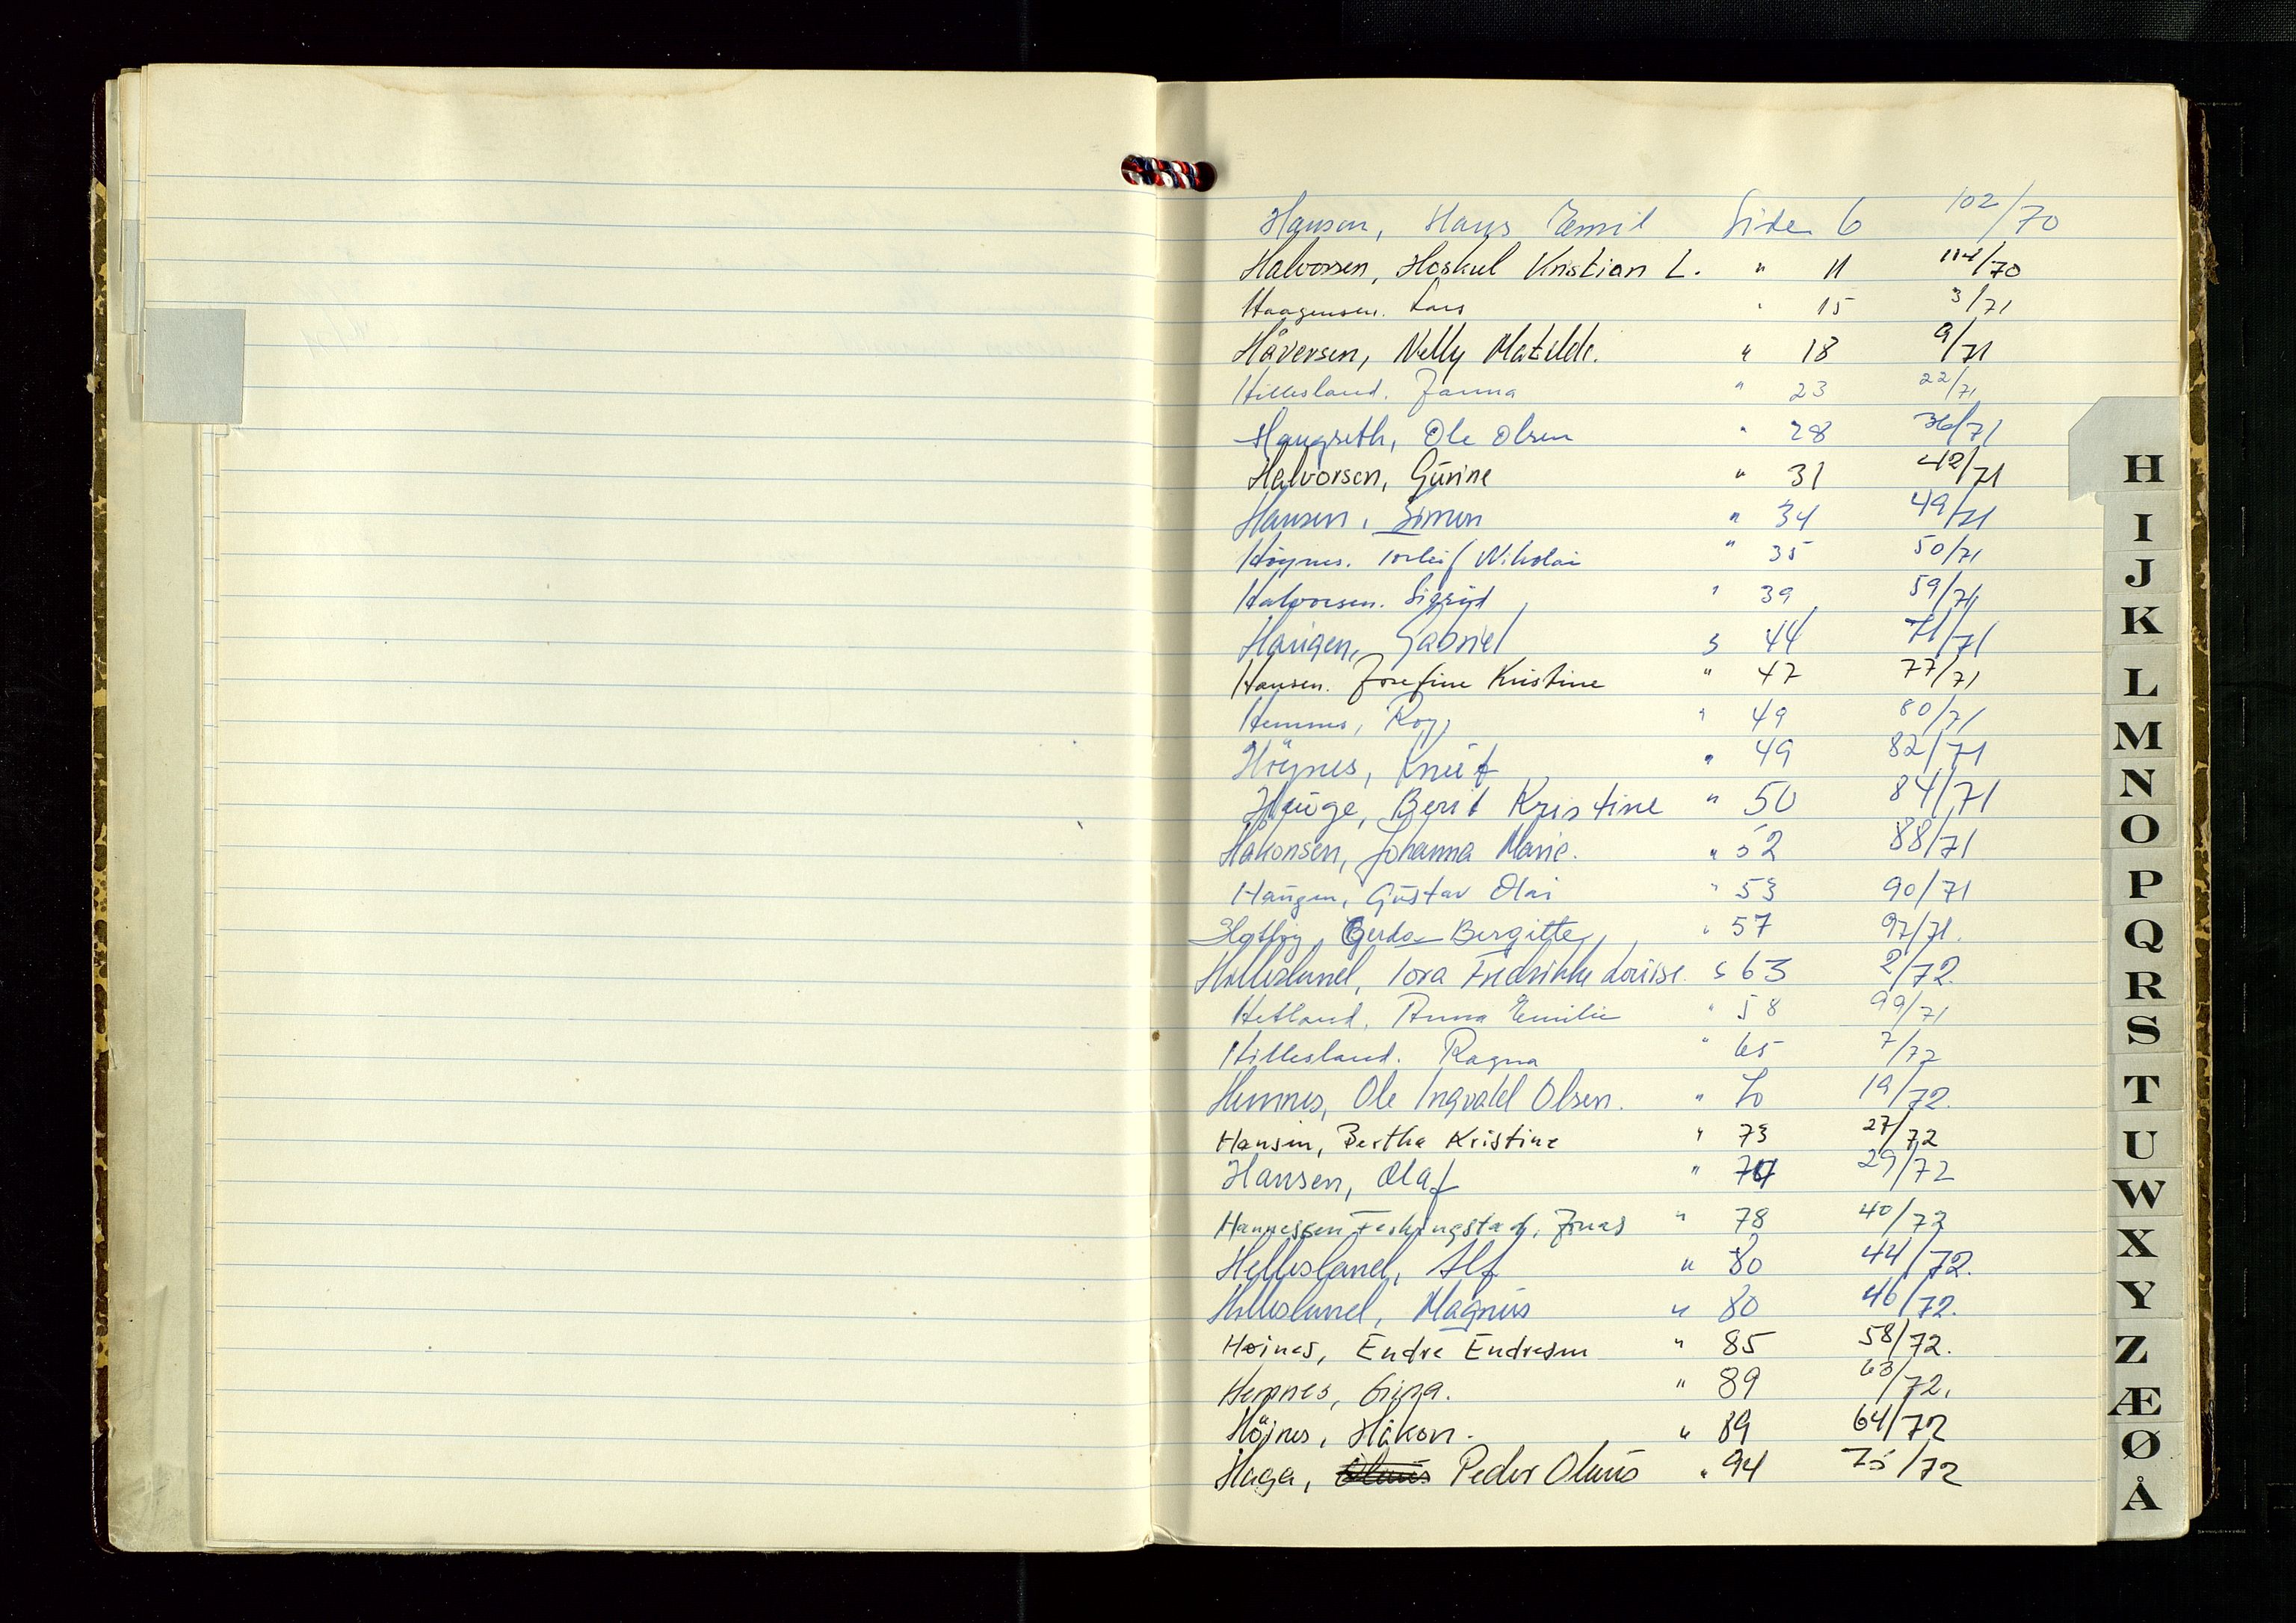 Hansen, Hans Emil Side 6 102/70
Halvorsen, Hoskul Kristian L. " 11 114/70
Haagensen. Lars " 15 3/71
Håversen, Nelly Matilde. " 18 9/71
Hillesland. Janna " 23 22/71
Haugseth, Ole Olsen " 28 36/71
Halvorsen, Gurine " 31 42/71
Hansen, Simon " 34 49/71
Höynes. Torleif Nikolai " 35 50/71
Halvorsen. Sigrid " 39 59/71
Haugen, Gabriel S 44 71/71
Hansen. Josefine Kristine " 47 77/71
Hemnes, Roy " 49 80/71
Höynes, Knut " 49 82/71
Hauge, Berit Kristine " 50 84/71
Håkonsen, Johanna Marie. " 52 88/71
Haugen, Gustav Olai " 53 90/71
Gerda Bergitte " 57 97/71.
Hillesland, Tora Fredrikke Louise. S 63 2/72.
Hetland. Anna Emilie " 58 99/71
Hillesland. Ragna " 65 7/72
Hemnes, Ole Ingvald Olsen. " 70 19/72.
Hansen, Bertha Kristine " 73 27/72
Hansen, Olaf " 74 29/72
Hannessen Feskingstad, Jonas " 78 40/72
Hellesland, Alf " 80 44/72.
Hillesland, Magnus " 80 46/72.
Høines, Endre Endresen " 85 58/72.
Hemnes, Gina. " 89 63/72.
Höjnes, Håkon. " 89 64/72
Haga, Olaus Peder Olaus " 94 75/72
H
I
J
K
L
M
N
O
P
Q
R
S
T
U
W
X
Y
Z
Æ
Ø
Å